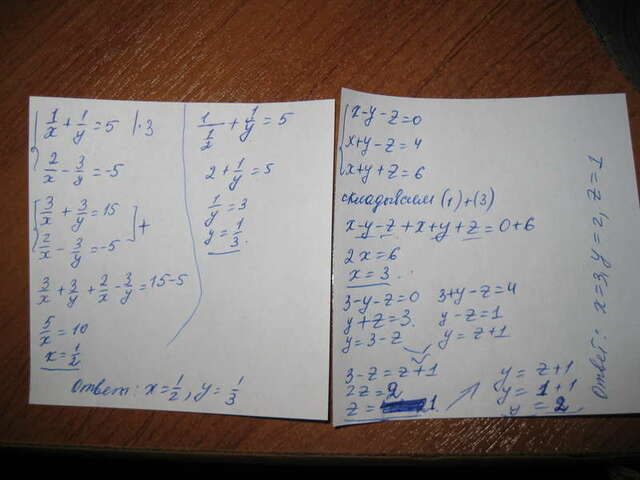 1/x + 1/y = 5 | · 3
2/x - 3/y = -5
3/x + 3/y = 15
2/x - 3/y = -5 +
3/x + 3/y + 2/x - 3/y = 15 - 5
5/x = 10
x = 1/2
1/(1/2) + 1/y = 5
2 + 1/y = 5
1/y = 3
y = 1/3.
Ответ: x = 1/2, y = 1/3
x - y - z = 0
x + y - z = 4
x + y + z = 6
складываем (1) + (3)
x - y - z + x + y + z = 0 + 6
2x = 6
x = 3.
3 - y - z = 0
y + z = 3.
y = 3 - z
3 + y - z = 4
y - z = 1
y = z + 1
3 - z = z + 1
2z = 2
z = 1.
y = z + 1
y = 1 + 1
y = 2.
Ответ: x = 3, y = 2, z = 1